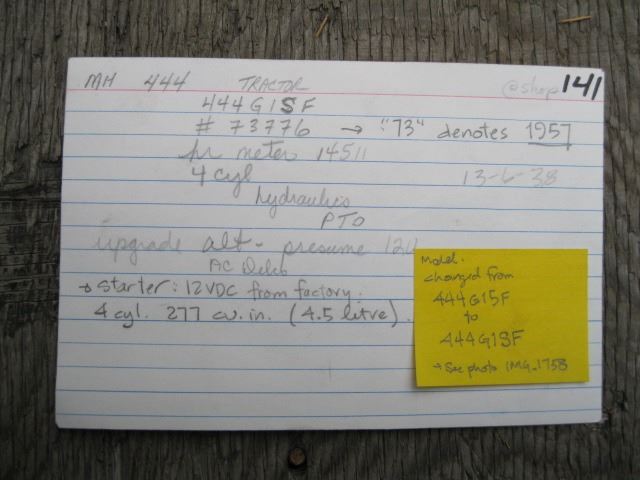 MH 444 TRACTOR @shop 141
444G1SF
# 73776 → "73" denotes 1957
hr meter 14511
4 cyl 13-6-38
hydraulics
PTO
upgrade alt - presume 12V
AC Delco
→ Starter: 12VDC from factory.
4 cyl. 277 cu. in. (4.5 litre).
Model.
changed from
444G15F
to
444G1SF
→ See photo IMG-1758